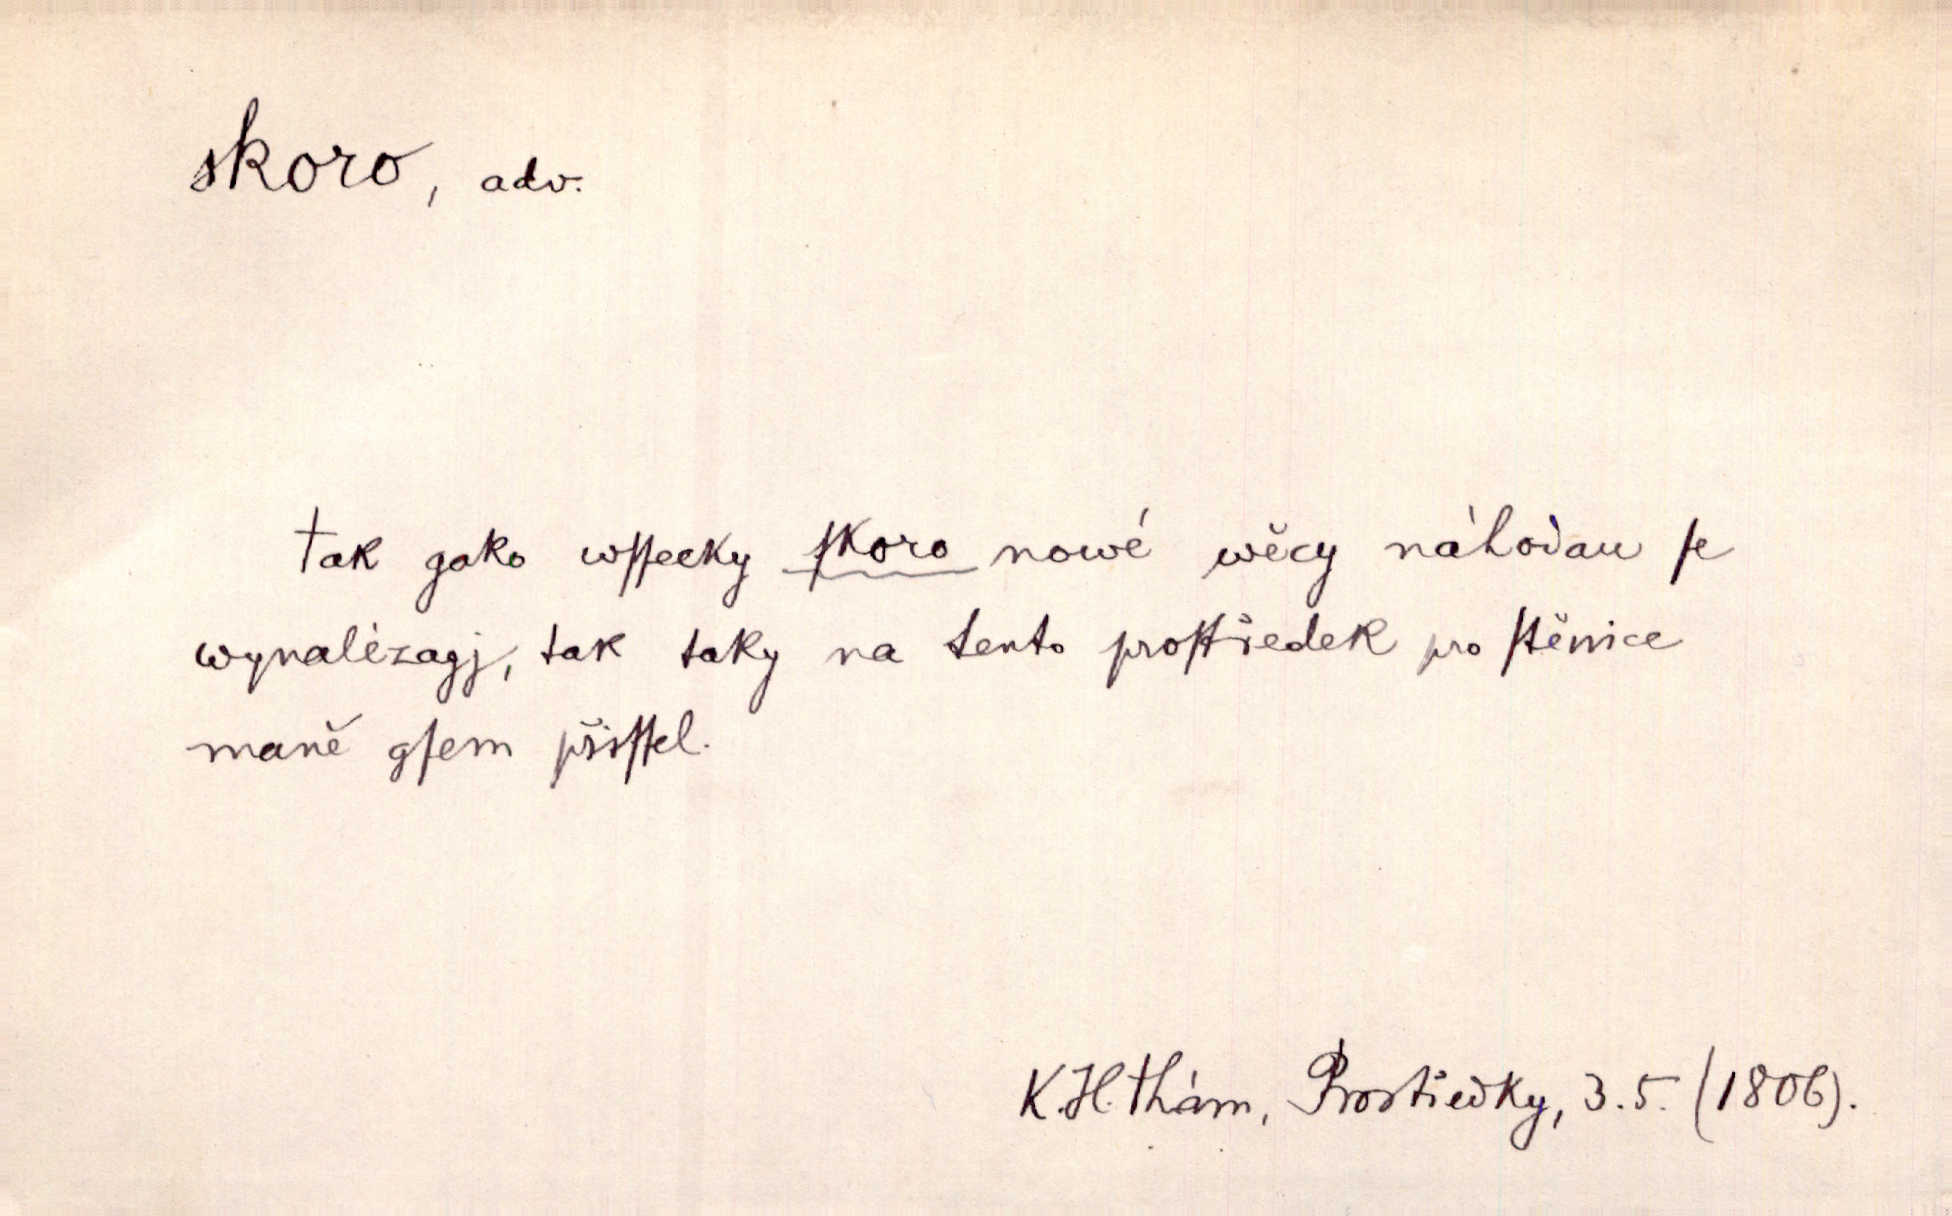 skoro, adv.
tak gako wſſecky ſkoro nowé wěcy náhodau ſe
wynalézagj, tak taky na tento proſtředek pro ſtěnice
maně gſem přiſſel.
K. H. Thám, Prostředky, 3.5. (1806).